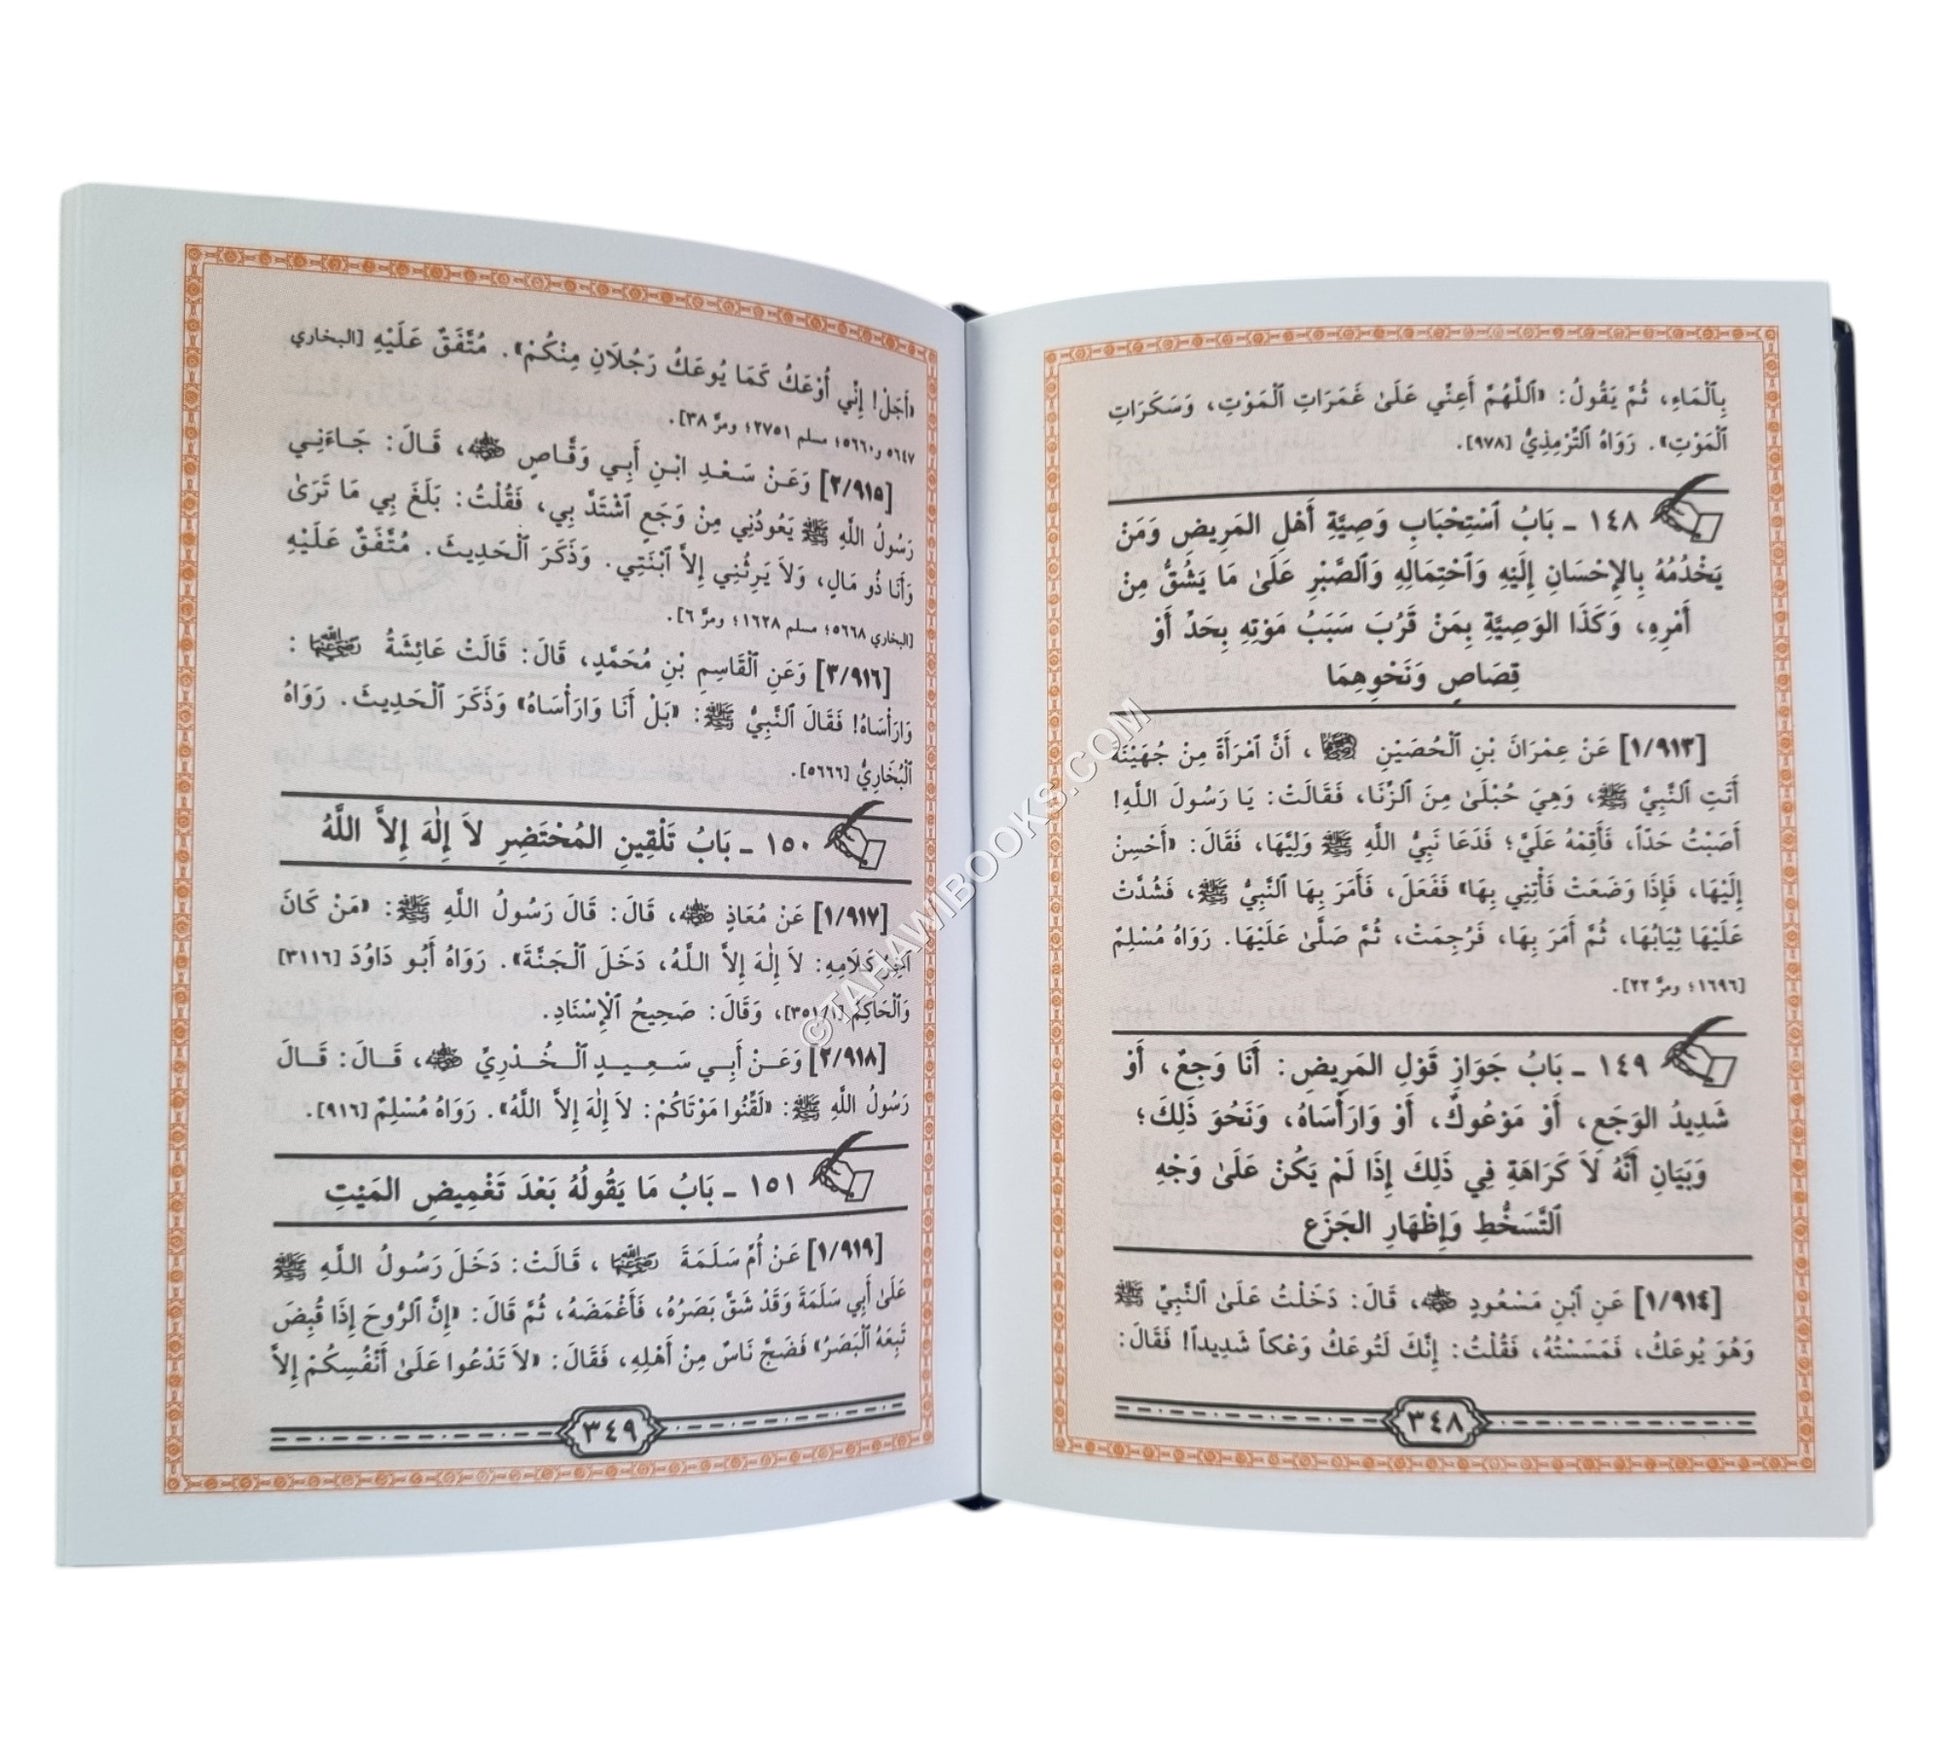 بِٱلْمَاءِ، ثُمَّ يَقُولُ: «ٱللَّهُمَّ أَعِنِّي عَلَىٰ غَمَرَاتِ ٱلْمَوْتِ، وَسَكَرَاتِ
ٱلْمَوْتِ». رَوَاهُ ٱلتِّرْمِذِيُّ [٩٧٨].
١٤٨ ـ بَابُ ٱسْتِحْبَابِ وَصِيَّةِ أَهْلِ المَرِيضِ وَمَنْ
يَخْدُمُهُ بِالإِحْسَانِ إِلَيْهِ وَٱحْتِمَالِهِ وَٱلصَّبْرِ عَلَىٰ مَا يَشُقُّ مِنْ
أَمْرِهِ، وَكَذَا الوَصِيَّةِ بِمَنْ قَرُبَ سَبَبُ مَوْتِهِ بِحَدٍّ أَوْ
قِصَاصٍ وَنَحْوِهِمَا
[١/٩١٣] عَنْ عِمْرَانَ بْنِ ٱلْحُصَيْنِ ﵄، أَنَّ ٱمْرَأَةً مِنْ جُهَيْنَةَ
أَتَتِ ٱلنَّبِيَّ ﷺ، وَهِيَ حُبْلَىٰ مِنَ ٱلزِّنَا، فَقَالَتْ: يَا رَسُولَ اللَّهِ!
أَصَبْتُ حَدّاً، فَأَقِمْهُ عَلَيَّ؛ فَدَعَا نَبِيُّ اللَّهِ ﷺ وَلِيَّهَا، فَقَالَ: «أَحْسِنْ
إِلَيْهَا، فَإِذَا وَضَعَتْ فَأْتِنِي بِهَا» فَفَعَلَ، فَأَمَرَ بِهَا ٱلنَّبِيُّ ﷺ، فَشُدَّتْ
عَلَيْهَا ثِيَابُهَا، ثُمَّ أَمَرَ بِهَا، فَرُجِمَتْ، ثُمَّ صَلَّىٰ عَلَيْهَا. رَوَاهُ مُسْلِمٌ
[١٦٩٦؛ ومرَّ ٢٢].
١٤٩ ـ بَابُ جَوَازِ قَوْلِ المَرِيضِ: أَنَا وَجِعٌ، أَوْ
شَدِيدُ الوَجَعِ، أَوْ مَوْعُوكٌ، أَوْ وَارَأْسَاهُ، وَنَحْوَ ذَلِكَ؛
وَبَيَانِ أَنَّهُ لَا كَرَاهَةِ فِي ذَلِكَ إِذَا لَمْ يَكُنْ عَلَىٰ وَجْهِ
ٱلتَّسَخُّطِ وَإِظْهَارِ الجَزَعِ
[١/٩١٤] عَنِ ٱبْنِ مَسْعُودٍ ﵁، قَالَ: دَخَلْتُ عَلَىٰ ٱلنَّبِيِّ ﷺ
وَهُوَ يُوعَكُ، فَمَسَسْتُهُ، فَقُلْتُ: إِنَّكَ لَتُوعَكُ وَعْكاً شَدِيداً! فَقَالَ:
٣٤٨
«أَجَلْ! إِنِّي أُوْعَكُ كَمَا يُوعَكُ رَجُلَانِ مِنْكُمْ». مُتَّفَقٌ عَلَيْهِ [البخاري
٥٦٤٧ و٥٦٦٠؛ مسلم ٢٧٥١؛ ومرَّ ٣٨].
[٢/٩١٥] وَعَنْ سَعْدِ ابْنِ أَبِي وَقَّاصٍ ﵁، قَالَ: جَاءَنِي
رَسُولُ اللَّهِ ﷺ يَعُودُنِي مِنْ وَجَعٍ ٱشْتَدَّ بِي، فَقُلْتُ: بَلَغَ بِي مَا تَرَىٰ
وَأَنَا ذُو مَالٍ، وَلَا يَرِثُنِي إِلاَّ ٱبْنَتِي. وَذَكَرَ ٱلْحَدِيثَ. مُتَّفَقٌ عَلَيْهِ
[البخاري ٥٦٦٨؛ مسلم ١٦٢٨؛ ومرَّ ٦].
[٣/٩١٦] وَعَنِ ٱلْقَاسِمِ بْنِ مُحَمَّدٍ، قَالَ: قَالَتْ عَائِشَةُ ﵂ :
وَارَأْسَاهُ! فَقَالَ ٱلنَّبِيُّ ﷺ: «بَلْ أَنَا وَارَأْسَاهُ» وَذَكَرَ ٱلْحَدِيثَ. رَوَاهُ
ٱلْبُخَارِيُّ [٥٦٦٦].
١٥٠ ـ بَابُ تَلْقِينِ المُحْتَضِرِ لَا إِلٰهَ إِلاَّ اللَّهُ
[١/٩١٧] عَنْ مُعَاذٍ ﵁، قَالَ: قَالَ رَسُولُ اللَّهِ ﷺ: «مَنْ كَانَ
آخِرَ كَلَامِهِ: لَا إِلٰهَ إِلاَّ اللَّهُ، دَخَلَ ٱلْجَنَّةَ». رَوَاهُ أَبُو دَاوُدَ [٣١١٦]
وَٱلْحَاكِمُ [٣٥١/١]، وَقَالَ: صَحِيحُ ٱلْإِسْنَادِ.
[٢/٩١٨] وَعَنْ أَبِي سَعِيدٍ ٱلْخُدْرِيِّ ﵁، قَالَ: قَالَ
رَسُولُ اللَّهِ ﷺ: «لَقِّنُوا مَوْتَاكُمْ: لَا إِلٰهَ إِلاَّ اللَّهُ». رَوَاهُ مُسْلِمٌ [٩١٦].
١٥١ ـ بَابُ مَا يَقُولُهُ بَعْدَ تَغْمِيضِ المَيْتِ
[١/٩١٩] عَنْ أُمِّ سَلَمَةَ ﵂، قَالَتْ: دَخَلَ رَسُولُ اللَّهِ ﷺ
عَلَىٰ أَبِي سَلَمَةَ وَقَدْ شَقَّ بَصَرُهُ، فَأَغْمَضَهُ، ثُمَّ قَالَ: «إِنَّ ٱلرُّوحَ إِذَا قُبِضَ
تَبِعَهُ ٱلْبَصَرُ» فَضَجَّ نَاسٌ مِنْ أَهْلِهِ، فَقَالَ: «لَا تَدْعُوا عَلَىٰ أَنْفُسِكُمْ إِلاَّ
٣٤٩
©TAHAWIBOOKS.COM